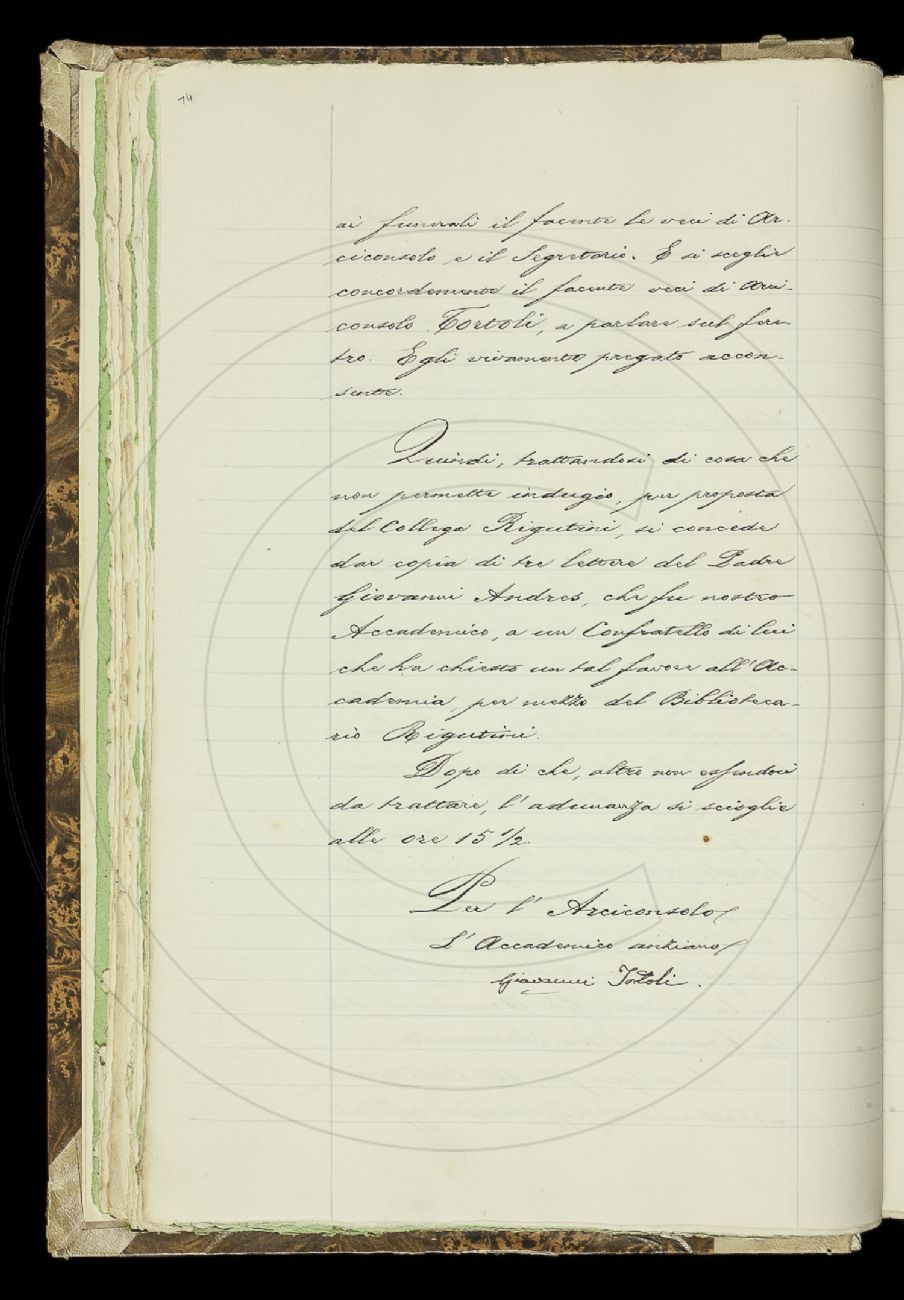 74
ai funerali il facente le veci di Ar-
ciconsolo e il Segretario. E si sceglie
concordemente il facente veci di Arci-
consolo Tortoli, a parlare sul fere-
tro. Egli vivamente pregato accon-
sente.
Quindi, trattandosi di cosa che
non permette indugio, per proposta
del Collega Rigutini, si concede
dar copia di tre lettere del Padre
Giovanni Andres, che fu nostro
Accademico, a un Confratello di lui
che ha chiesto un tal favore all'Ac-
cademia, per mezzo del Biblioteca-
rio Rigutini.
Dopo di che, altro non essendoci
da trattare, l'adunanza si scioglie
alle ore 15 1/2.
Per l'Arciconsolo
L'Accademico anziano
Giovanni Tortoli.